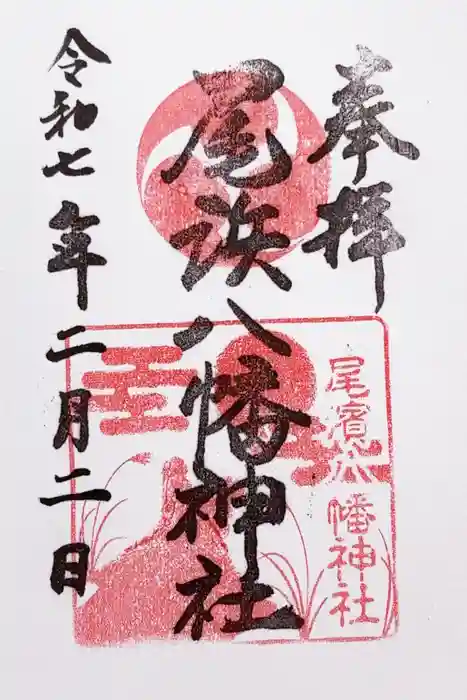 奉拝
尾濱八幡神社
尾浜八幡神社
令和七年二月二日